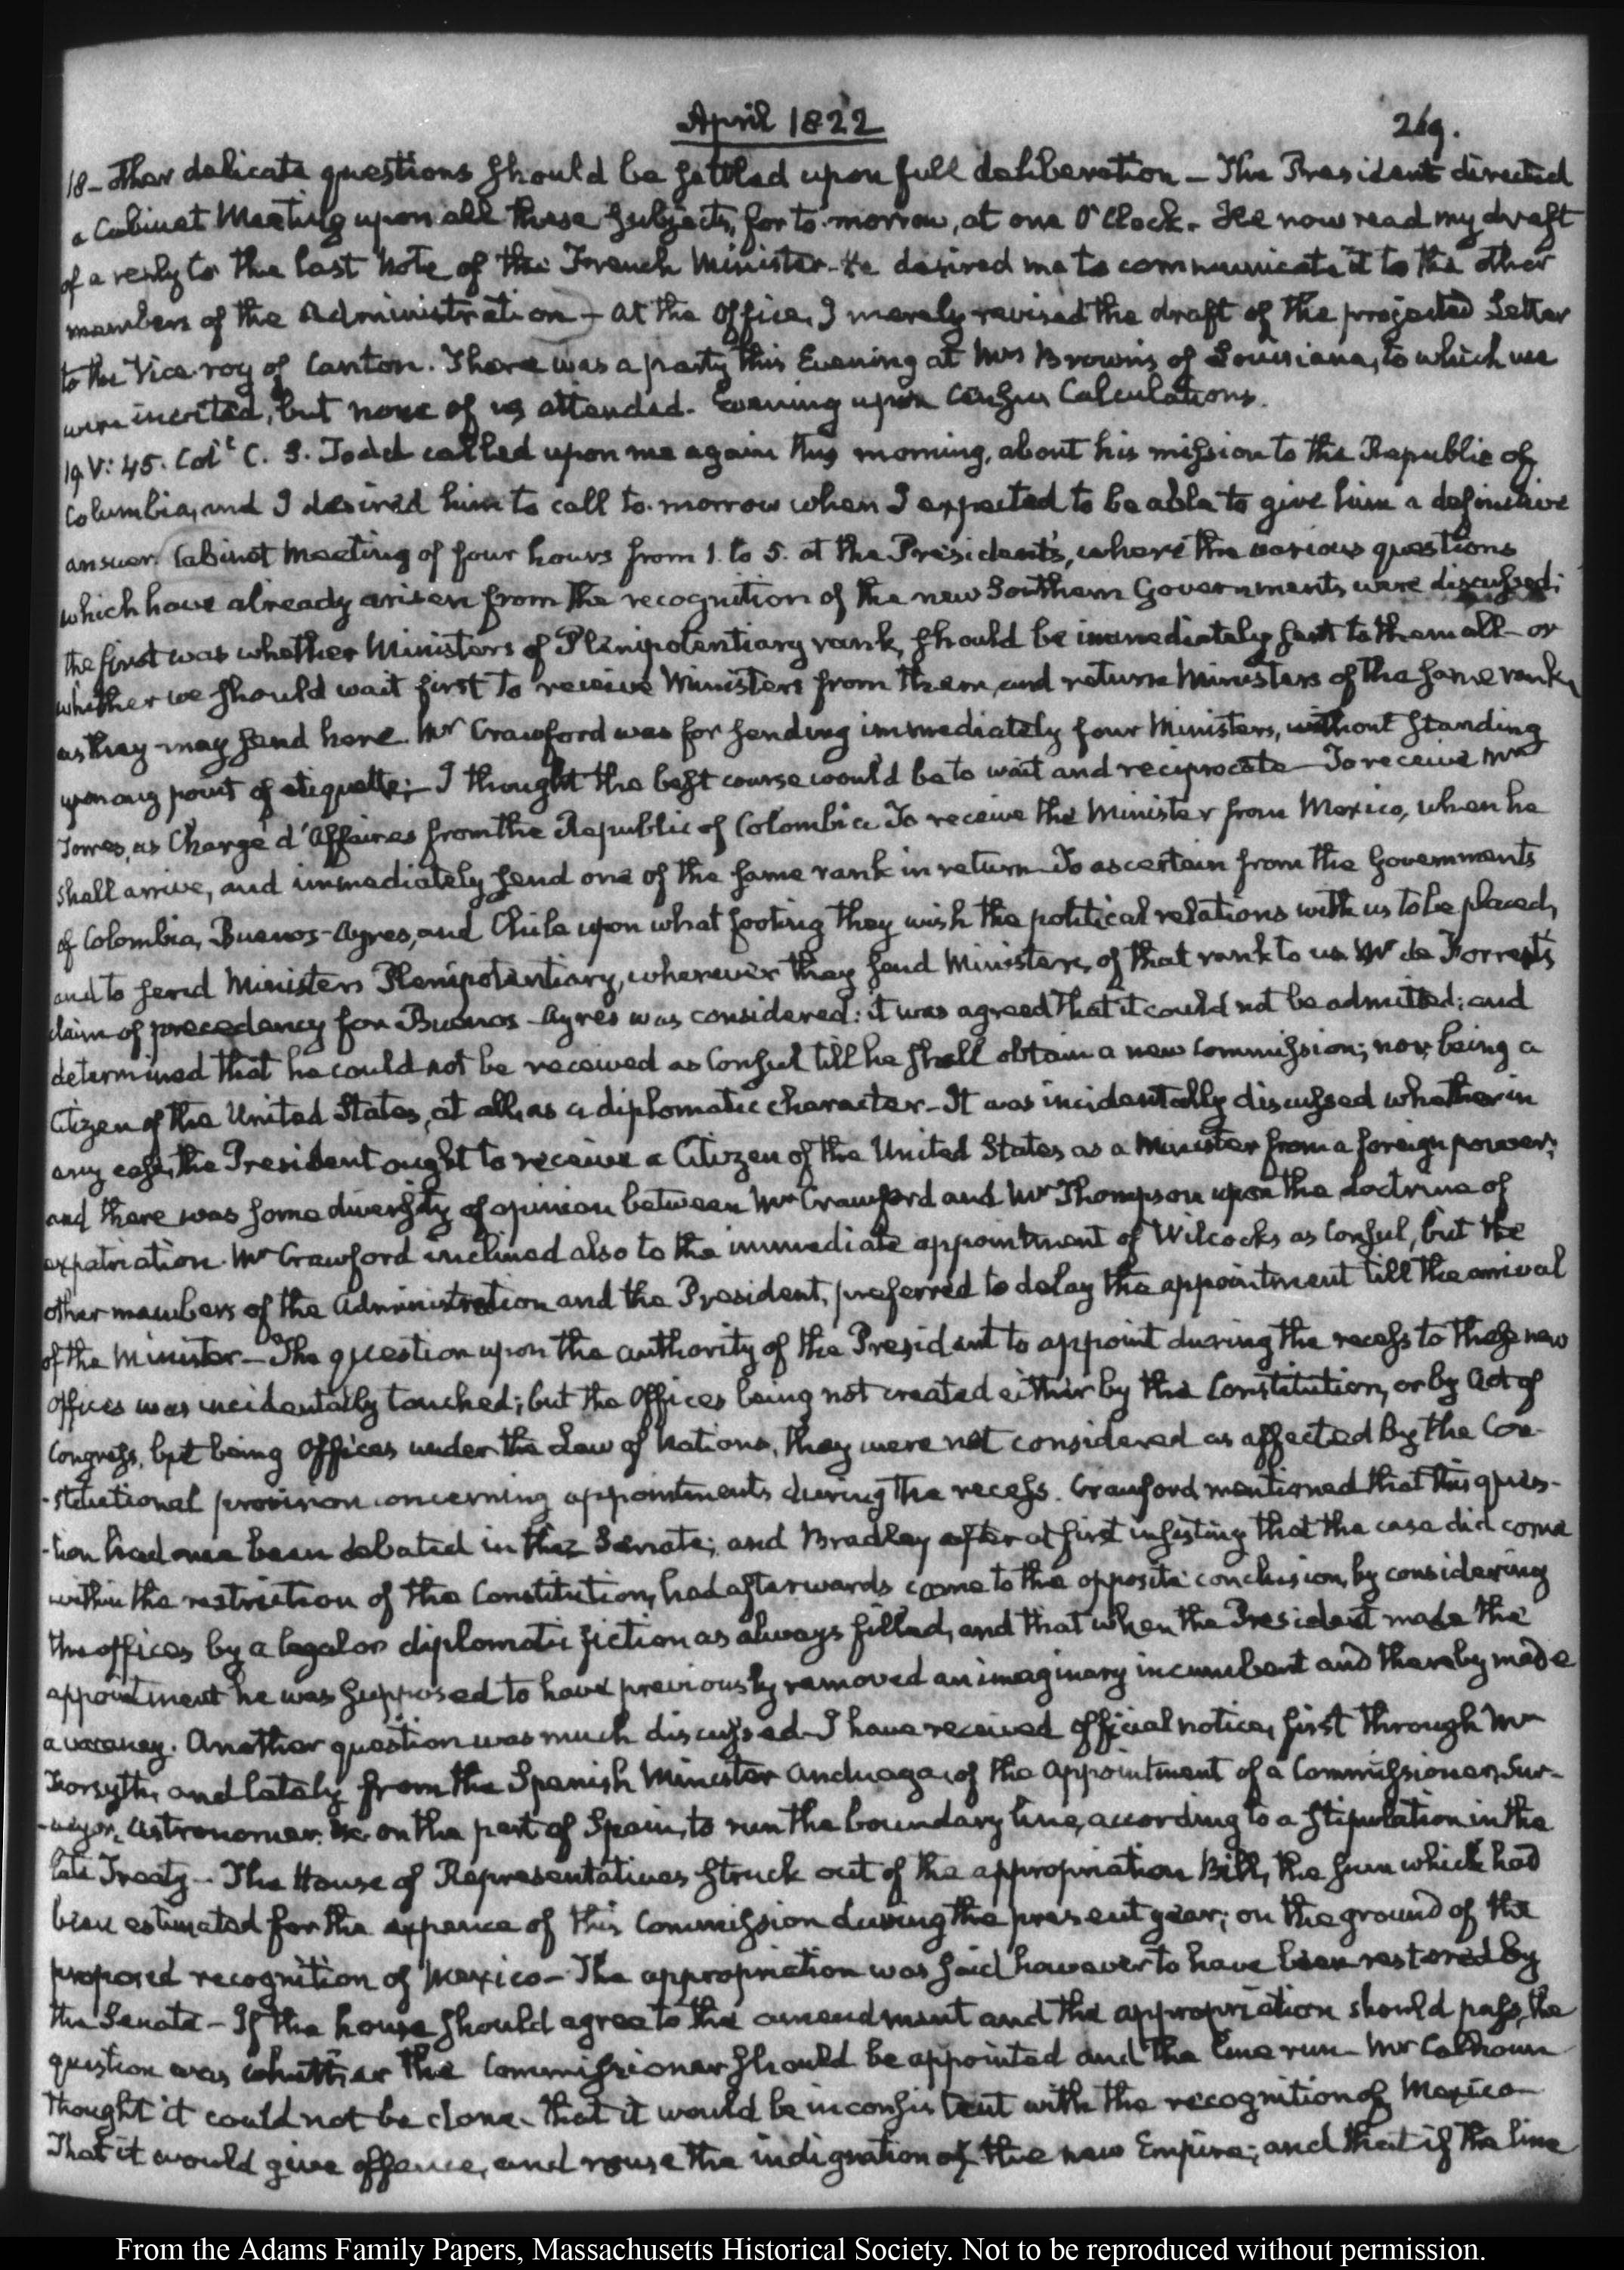 April 1822
269.
18- other delicate questions should be settled upon full deliberation - The President directed
a Cabinet Meeting upon all these subjects, for to-morrow, at one O'Clock. He now read my draft
of a reply to the last Note of the French Minister. He desired me to communicate it to the other
members of the Administration - At the Office, I merely revised the draft of the projected Letter
to the Vice-roy of Canton. There was a party this Evening at Mrs Brown's of Louisiana, to which we
were invited, but none of us attended. Evening upon Census Calculations.
19. V: 45. Col. C. S. Todd called upon me again this morning, about his mission to the Republic of
Columbia, and I desired him to call to-morrow when I expected to be able to give him a definitive
answer. Cabinet Meeting of four hours from 1. to 5. at the President's, where the various questions
which have already arisen from the recognition of the new Southern Governments were discussed:
the first was whether Ministers of Plenipotentiary rank, should be immediately sent to them all - or
whether we should wait first to receive Ministers from them, and return Ministers of the same rank,
as they may send here. Mr Crawford was for sending immediately four Ministers, without standing
upon any point of etiquette; I thought the best course would be to wait and reciprocate - To receive Mr
Torres, as Chargé d'Affaires from the Republic of Colombia. To receive the Minister from Mexico, when he
shall arrive, and immediately send one of the same rank in return. To ascertain from the Governments
of Colombia, Buenos-Ayres, and Chile upon what footing they wish the political relations with us to be placed,
and to send Ministers Plenipotentiary, wherever they send Ministers, of that rank to us. Mr de Forrest's
claim of precedency for Buenos-Ayres was considered: it was agreed that it could not be admitted; and
determined that he could not be received as Consul till he shall obtain a new Commission; nor, being a
Citizen of the United States, at all, as a diplomatic character - It was incidentally discussed whether in
any case, the President ought to receive a Citizen of the United States as a Minister from a foreign power;
and there was some diversity of opinion between Mr Crawford and Mr Thompson upon the doctrine of
expatriation. Mr Crawford inclined also to the immediate appointment of Wilcocks as Consul, but the
other members of the Administration and the President, preferred to delay the appointment till the arrival
of the Minister - The question upon the authority of the President to appoint during the recess to these new
Offices was incidentally touched; but the Offices being not created either by the Constitution, or by Act of
Congress, but being Offices under the Law of Nations, they were not considered as affected by the Con-
-stitutional provision concerning appointments during the recess. Crawford mentioned that this ques-
-tion had once been debated in the Senate; and Bradley after at first insisting that the case did come
within the restriction of the Constitution, had afterwards come to the opposite conclusion, by considering
the offices by a legal or diplomatic fiction as always filled, and that when the President made the
appointment he was supposed to have previously removed an imaginary incumbent and thereby made
a vacancy. Another question was much discussed - I have received official notice, first through Mr
Forsyth, and lately from the Spanish Minister Anduaga, of the appointment of a Commissioner, Sur-
-veyor, Astronomer, &c. on the part of Spain, to run the boundary line, according to a stipulation in the
late Treaty - The House of Representatives struck out of the appropriation Bill, the sum which had
been estimated for the expence of this Commission during the present year; on the ground of the
proposed recognition of Mexico - The appropriation was said however to have been restored by
the Senate - If the house should agree to the amendment and the appropriation should pass, the
question was whether the Commissioner should be appointed and the line run - Mr Calhoun
thought it could not be done - that it would be inconsistent with the recognition of Mexico -
That it would give offence, and rouse the indignation of the new Empire; and that if the line
From the Adams Family Papers, Massachusetts Historical Society. Not to be reproduced without permission.